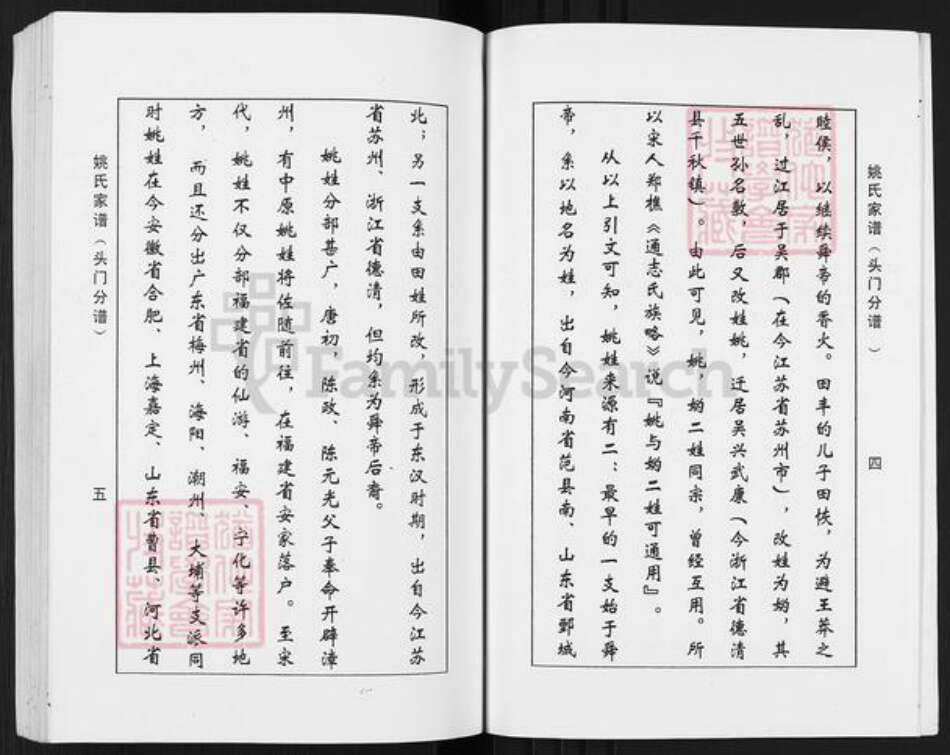 姚氏家谱（头门分谱）
四
睦侯，以继续舜帝的香火。田丰的儿子田恢，为避王莽之
乱，过江居于吴郡（在今江苏省苏州市），改姓为妫，其
五世孙名敷，后又改姓姚，迁居吴兴武康（今浙江省德清
县千秋镇）。由此可见，姚，妫二姓同宗，曾经互用。所
以宋人郑樵《通志氏族略》说『姚与妫二姓可通用』。
从以上引文可知，姚姓来源有二：最早的一支始于舜
帝，系以地名为姓，出自今河南省范县南、山东省鄄城
北；另一支系由田姓所改，形成于东汉时期，出自今江苏
省苏州、浙江省德清，但均系为舜帝后裔。
姚姓分部甚广，唐初，陈政、陈元光父子奉命开辟漳
州，有中原姚姓将佐随前往，在福建省安家落户。至宋
代，姚姓不仅分部福建省的仙游、福安、宁化等许多地
方，而且还分出广东省梅州、海阳、潮州、大埔等支派同
时姚姓在今安徽省合肥、上海嘉定、山东省曹县、河北省
姚氏家谱（头门分谱）
五
FamilySearch